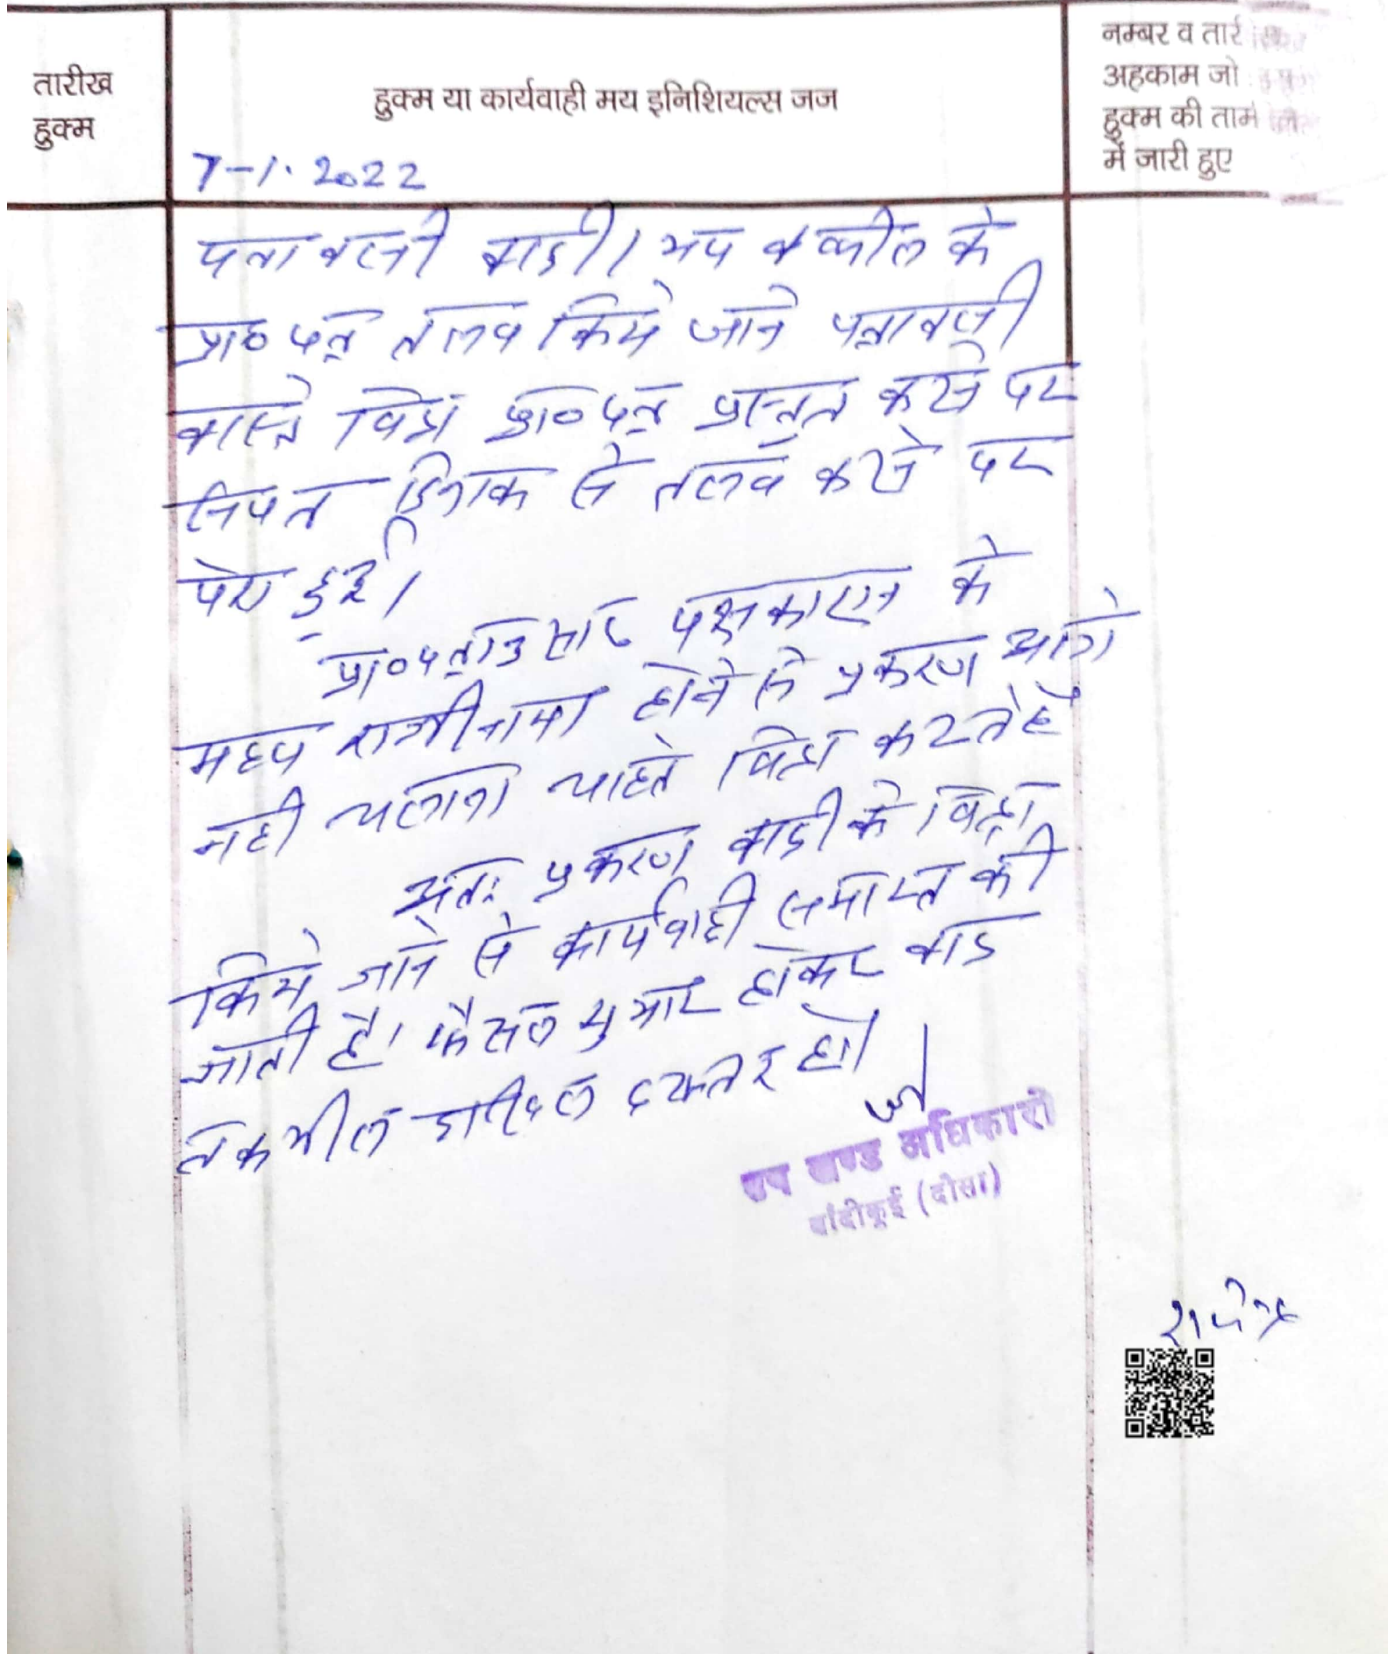 तारीख
हुक्म
हुक्म या कार्यवाही मय इनिशियल्स जज
नम्बर व तारी
अहकाम जो इस
हुक्म की तामी
में जारी हुए
7-1-2022
पत्रावली वादी मय वकील के
प्रा० पत्र तलब किये जाने पत्रावली
वास्ते विड्रा प्रा० पत्र प्रस्तुत करने पर
नियत दिनांक से तलब करने पर
पेश हुई।
प्रा० पत्रानुसार पक्षकारान के
मध्य राजीनामा होने से प्रकरण आगे
नही चलाना चाहते विड्रा करते है
अतः प्रकरण वादी के विड्रा
किये जाने से कार्यवाही समाप्त की
जाती है। फैसल शुमार होकर बाद
तकमील दाखिल दफ्तर हो।
उप खण्ड अधिकारी
बांदीकुई (दौसा)